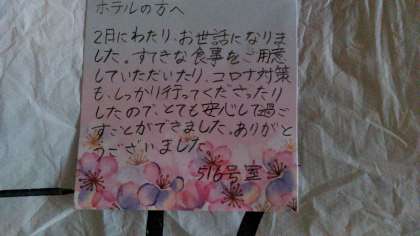 ホテルの方へ
2日にわたり、お世話になりま
した。すてきな食事をご用意
していただいたり、コロナ対策
も、しっかり行ってくださったり
したので、とても安心して過ご
すことができました。ありがと
うございました。
516号室